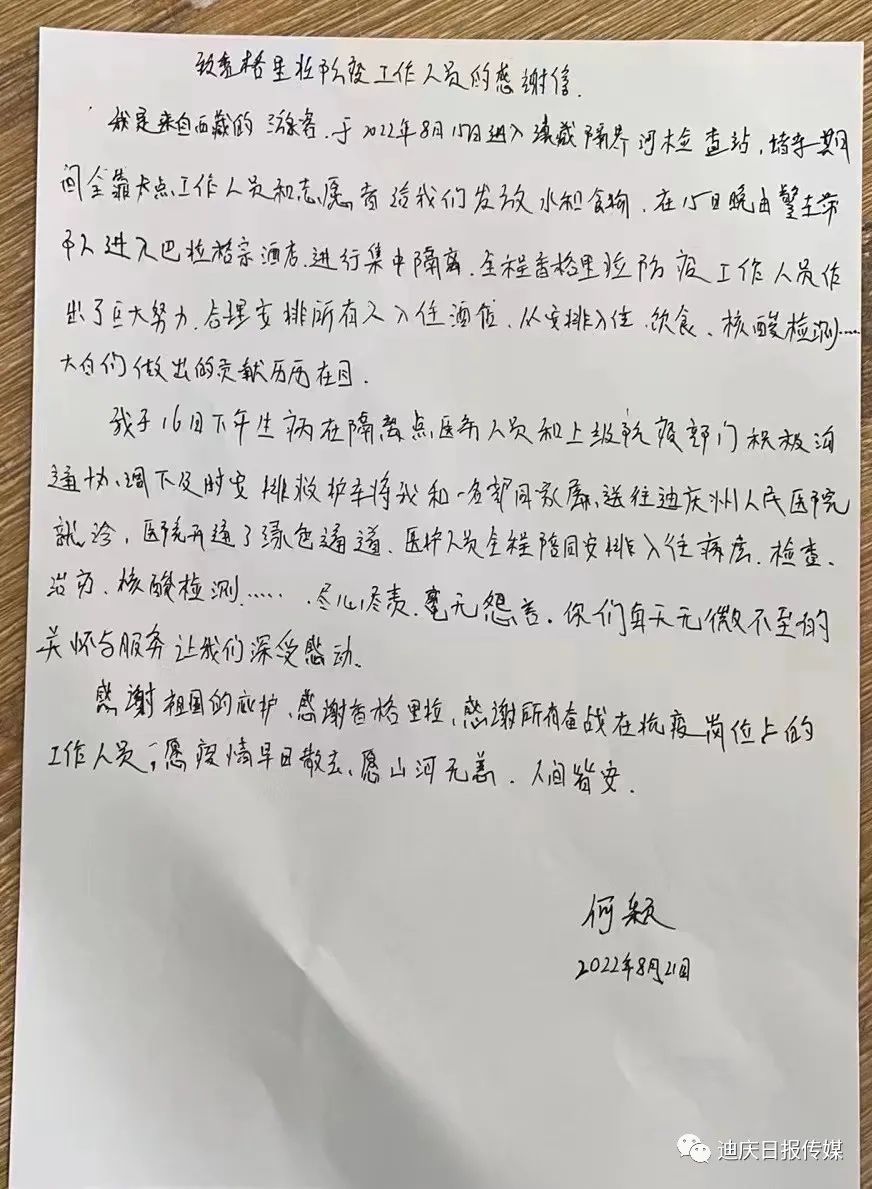 致香格里拉防疫工作人员的感谢信.
我是来自西藏的游客.于2022年8月15日进入滇藏隔界河检查站,堵车期
间全靠卡点工作人员和志愿者给我们发放水和食物.在15日晚由警车带
入进入巴拉格宗酒店.进行集中隔离.全程香格里拉防疫工作人员作
出了巨大努力.合理安排所有人入住酒店.从安排入住.饮食、核酸检测……
大白们做出的贡献历历在目.
我于16日下午生病在隔离点医务人员和上级防疫部门积极沟
通协调下及时安排救护车将我和一名同家属送往迪庆州人民医院
就诊,医院开通了绿色通道.医护人员全程陪同安排入住病房.检查.
治疗.核酸检测…….尽心尽责.毫无怨言.你们每天无微不至的
关怀与服务让我们深受感动.
感谢祖国的庇护、感谢香格里拉,感谢所有奋战在抗疫岗位上的
工作人员,愿疫情早日散去、愿山河无恙.人间皆安.
何颖
2022年8月21日
迪庆日报传媒